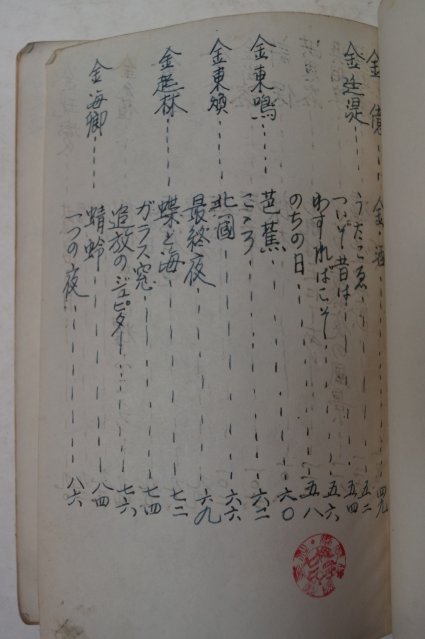 金億……四九
金廷湜……うたごゑ……五二
ついぞ昔は……五四
わすればこそ……五六
のちの日……五八
金東鳴……芭蕉……六〇
こゝろ……六二
金東煥……北國……六六
最終夜……六九
金起林……蝶と海……七二
ガラス窓……七四
追放のジュピター……七六
金海卿……蜻蛉……八四
一つの夜……八六